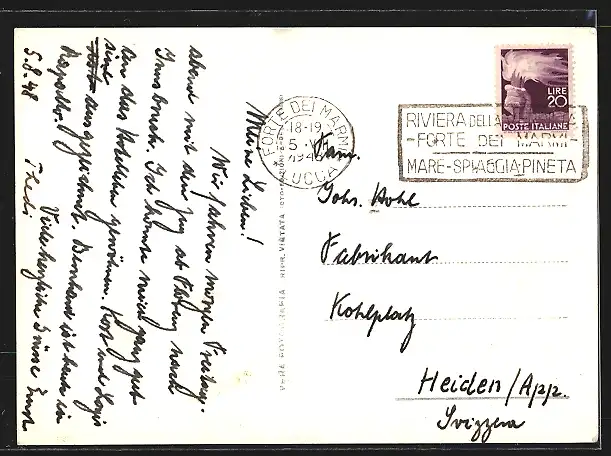 Meine Lieben!
Wir fahren morgen Freitag
abend mit dem Zug ab nach
Innsbruck. Ich könnte mich ganz gut
an das Hotelleben gewöhnen. Kost und Logis
sind ausgezeichnet. Bernhard ist heute in
Rapallo. Viele herzliche Grüsse Ernst
5.8.48 Fredi
VERA FOTOGRAFIA RIPR. VIETATA
FORTE DEI MARMI
18-19
5 VIII
1948
LUCCA
RIVIERA DELLA
-FORTE DEI MARMI-
MARE-SPIAGGIA-PINETA
LIRE
20
POSTE ITALIANE
Fam.
Johs. Hohl
Fabrikant
Kohlplatz
Heiden/App.
Svizzera